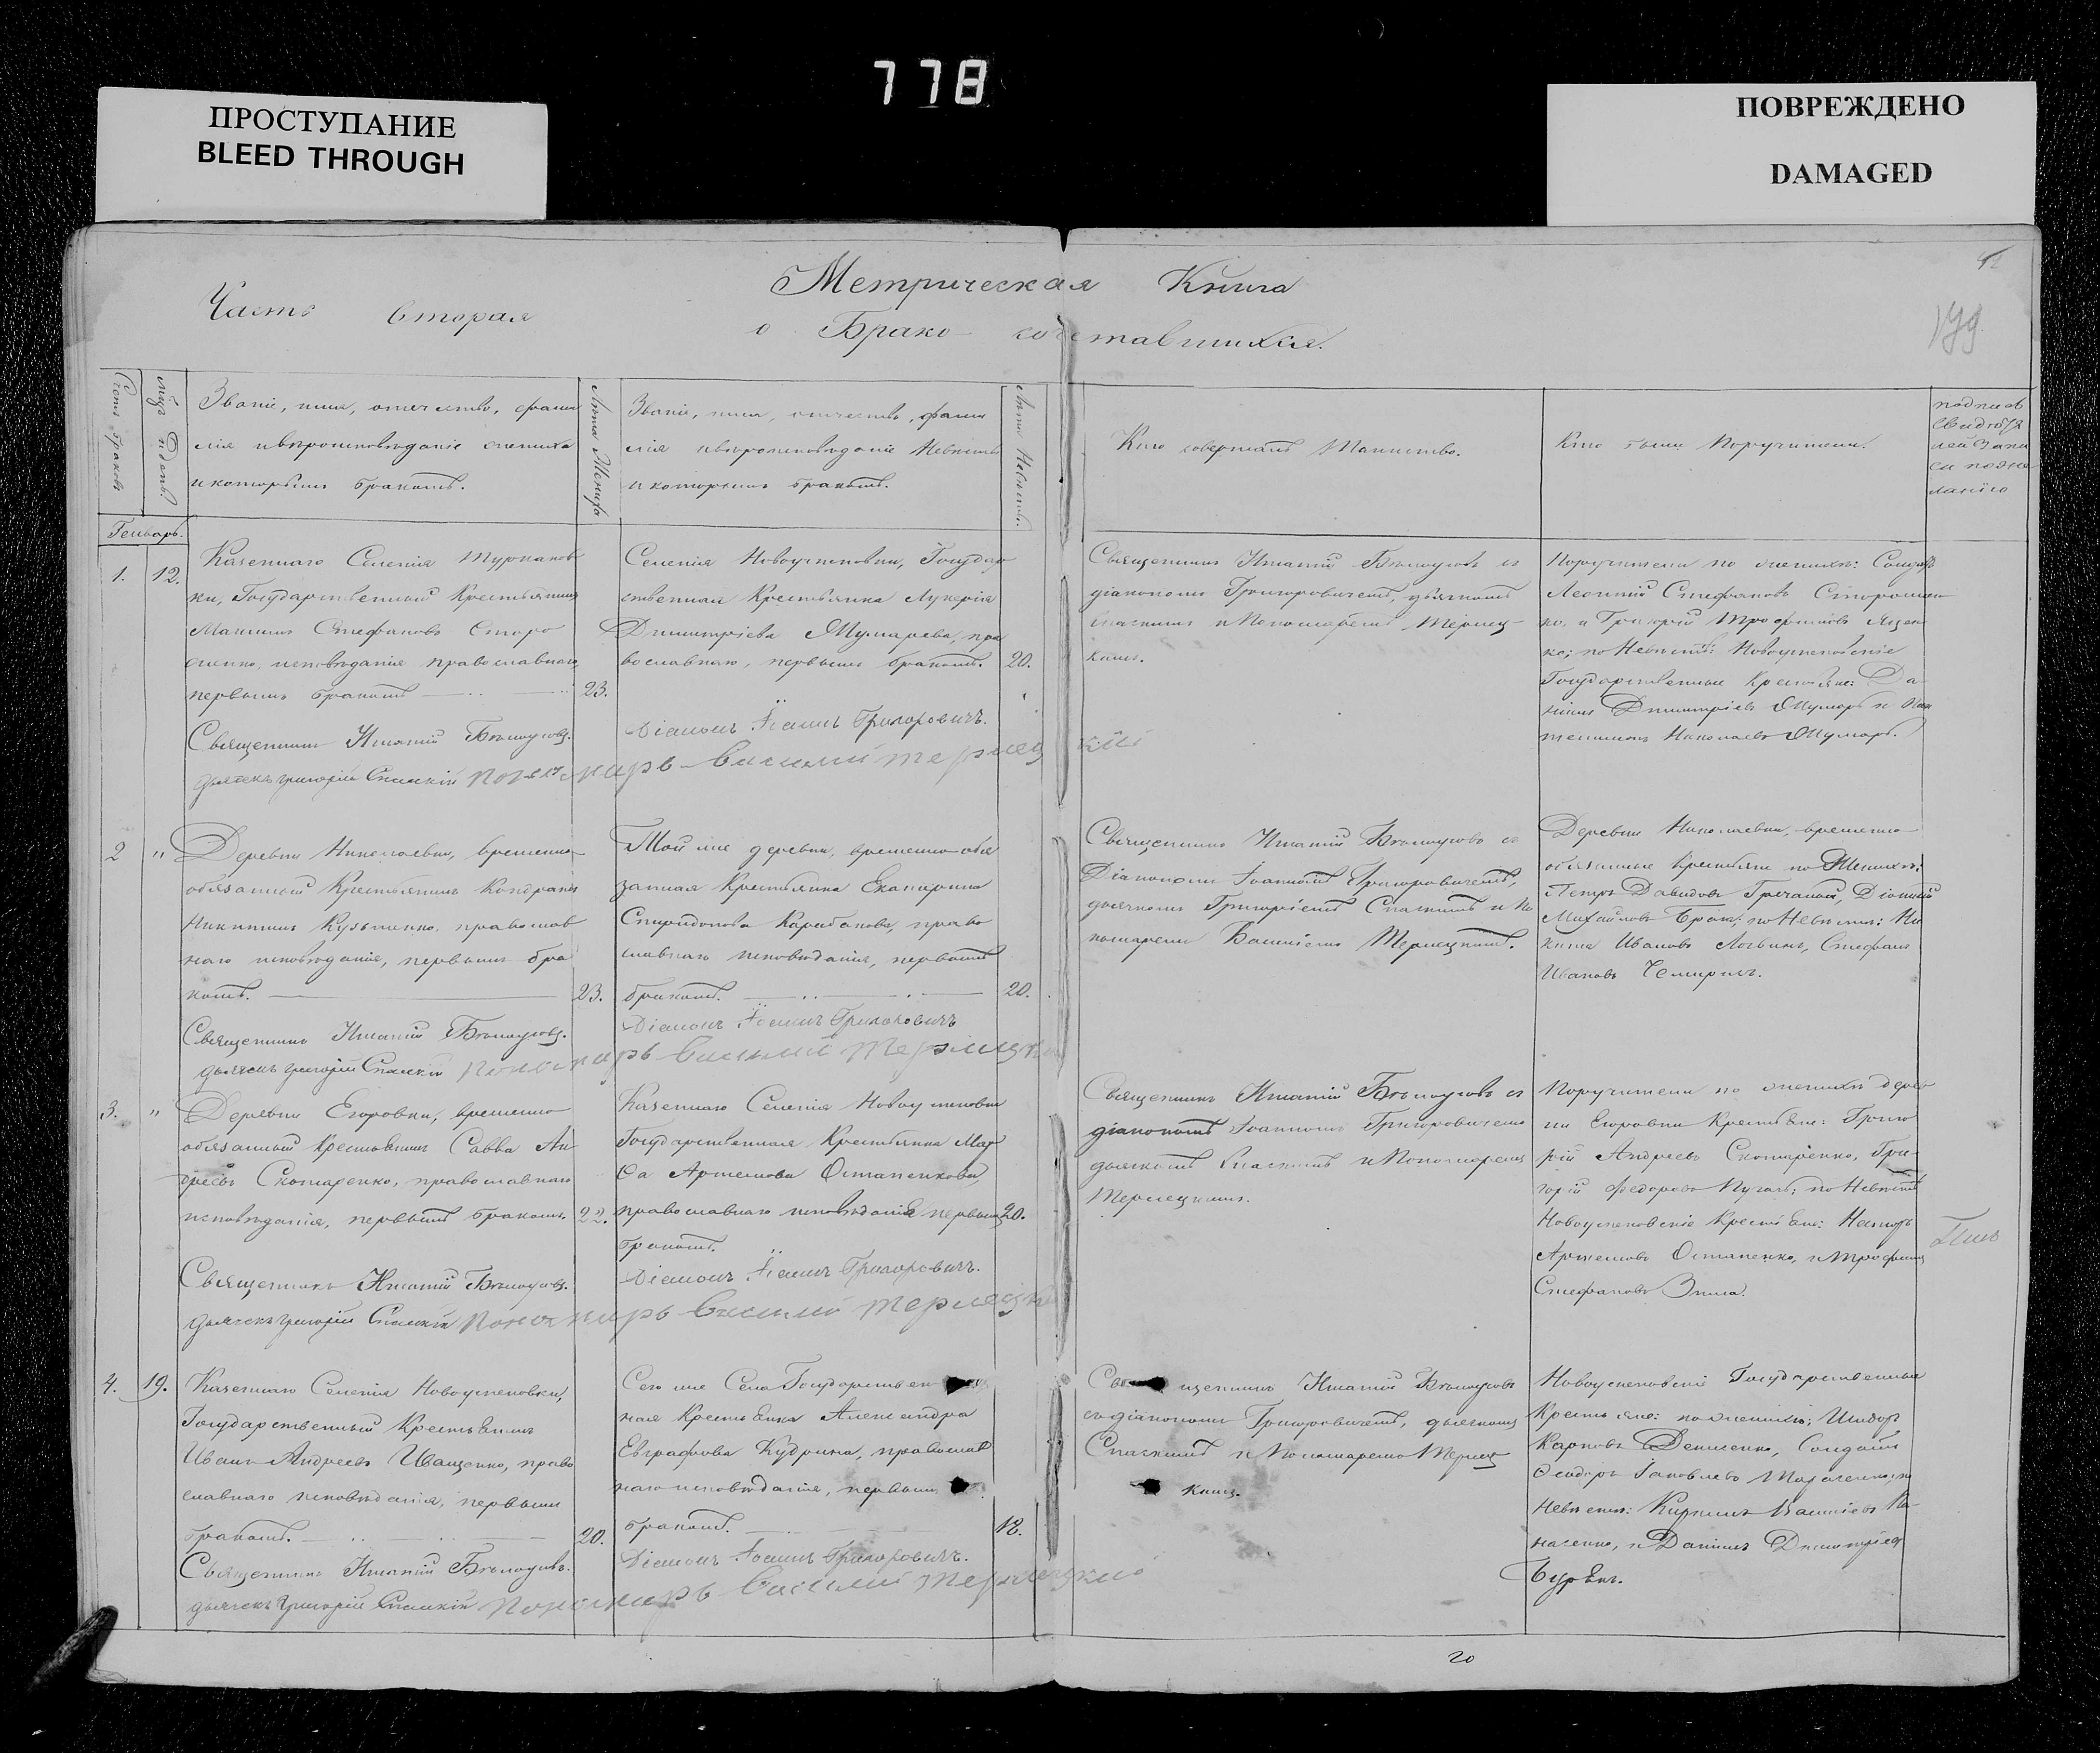 778
ПРОСТУПАНИЕ
BLEED THROUGH
ПОВРЕЖДЕНО
DAMAGED
Метрическая Книга
Часть вторая
о Брако сочетавшихся.
199
Счетъ браковъ
Мѣсяцъ и день
Званіе, имя, отчество, фами
лія и вѣроисповѣданіе жениха
и которымъ бракомъ.
Лѣта Жениха
Званіе, имя, отчество, фами
лія и вѣроисповѣданіе Невѣсты
и которымъ бракомъ.
Лѣта Невѣсты.
Кто совершалъ Таинство.
Кто были Поручители.
подпись
свидѣте
лей запи
си по же
ланію
Генварь.
1. 12.
Казеннаго Селенія Турканов
ки, Государственный Крестьянинъ
Максимъ Стефановъ Сторо
женко, исповѣданія православнаго,
первымъ бракомъ 23.
Священникъ Игнатій Бѣлоусовъ.
дьячекъ Григорій Спаскій Пономарь Василий Терлецкій
Селенія Новоуспеновки, Государ
ственная Крестьянка Лукерія
Димитріева Шумарева, пра
вославнаго, первымъ бракомъ. 20.
Діаконъ Іоаннъ Григоровичъ.
Священникъ Игнатій Бѣлоусовъ съ
діакономъ Григоровичемъ, дьячкомъ
Спаскимъ и Пономаремъ Терлец-
кимъ.
Поручители по женихѣ: Солдатъ
Леонтій Стефановъ Сторожен
ко, и Григорій Трофимовъ Яцен
ко; по Невѣстѣ: Новоуспеновскіе
Государственные Крестьяне: Да
ніилъ Димитріевъ Шумаръ и Кон
стантинъ Николаевъ Шумаръ.
2 "
Деревни Николаевки, временно
обязанный Крестьянинъ Кондратъ
Никитинъ Кузьменко, православ
наго исповѣданія, первымъ бра
комъ. 23.
Священникъ Игнатій Бѣлоусовъ.
дьячекъ Григорій Спаскій Пономарь Василий Терлецкій
Той же деревни, временно обя
занная Крестьянка Екатерина
Спиридонова Карабанова, право
славнаго исповѣданія, первымъ
бракомъ. 20.
Діаконъ Іоаннъ Григоровичъ
Священникъ Игнатій Бѣлоусовъ съ
Діакономъ Іоанномъ Григоровичемъ,
дьячкомъ Григоріемъ Спаскимъ и По
номаремъ Василіемъ Терлецкимъ.
Деревни Николаевки, временно
обязанные крестьяне по Женихѣ:
Петръ Давидовъ Гречаный, Діонисій
Михайловъ; по Невѣстѣ: Ни
кита Ивановъ Логвинъ, Стефанъ
Ивановъ Чемирисъ.
3. "
Деревни Егоровки, временно
обязанный Крестьянинъ Савва Ан
дреевъ Скотаренко, православнаго
исповѣданія, первымъ бракомъ. 22.
Священникъ Игнатій Бѣлоусовъ.
дьячекъ Григорій Спаскій Пономарь Василий Терлецкій
Казеннаго Селенія Новоуспеновки
Государственная Крестьянка Мар
ѳа Артемова Остапенкова,
православнаго исповѣданія первымъ 20.
бракомъ.
Діаконъ Іоаннъ Григоровичъ.
Священникъ Игнатій Бѣлоусовъ съ
діакономъ Іоанномъ Григоровичемъ
дьячкомъ Спаскимъ и Пономаремъ
Терлецкимъ.
Поручители по женихѣ дерев
ни Егоровки Крестьяне: Григо
рій Андреевъ Скотаренко, Гри-
горій Федоровъ Пугачъ; по Невѣстѣ
Новоуспеновскіе Крестьяне:
Артемовъ Остапенко, и Трофимъ
Стефановъ Зима.
4. 19.
Казеннаго Селенія Новоуспеновки,
Государственный Крестьянинъ
Иванъ Андреевъ Иващенко, право
славнаго исповѣданія, первымъ
бракомъ. 20.
Священникъ Игнатій Бѣлоусовъ.
дьячекъ Григорій Спаскій Пономарь Василий Терлецкій
Сего же Села Государствен
ная Крестьянка Александра
Евграфова Кудрина, православ
наго исповѣданія, первымъ
бракомъ. 18.
Діаконъ Іоаннъ Григоровичъ.
Священникъ Игнатій Бѣлоусовъ
съ діакономъ Григоровичемъ, дьячкомъ
Спаскимъ и Пономаремъ Терлец
кимъ.
Новоуспеновскіе Государственные
Крестьяне: по женихѣ: Исидоръ
Карповъ Денисенко, Солдатъ
Ѳеодоръ Іаковлевъ
Невѣстѣ: Кириллъ Василіевъ Па-
насенко, и Даніилъ Димитріевъ
20